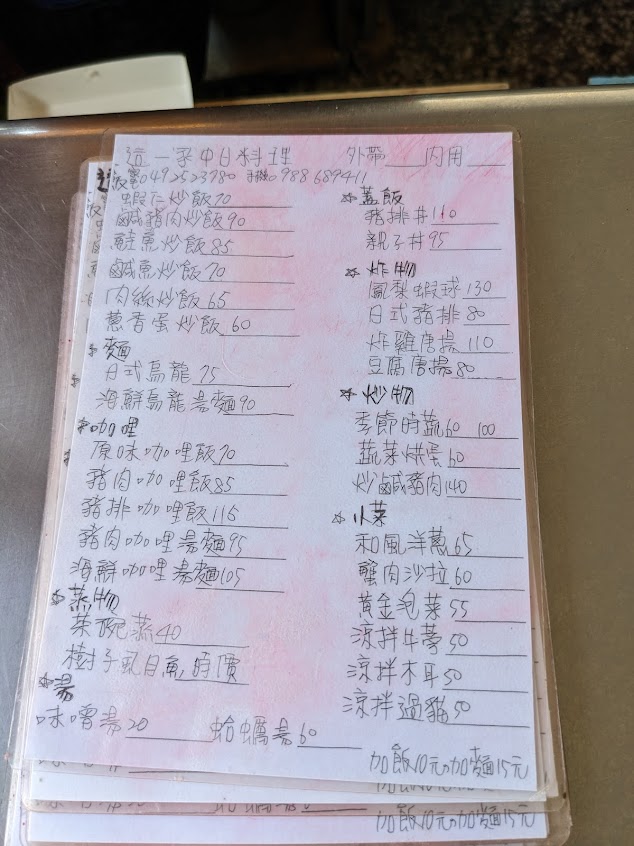 這一家中日料理 外帶 內用
049 2523780 手機0988 689411
蝦仁炒飯70
鹹豬肉炒飯90
鮭魚炒飯85
鹹魚炒飯70
肉絲炒飯65
蔥香蛋炒飯60
麵
日式烏龍75
海鮮烏龍湯麵90
咖哩
原味咖哩飯70
豬肉咖哩飯85
豬排咖哩飯115
豬肉咖哩湯麵95
海鮮咖哩湯麵105
☆蒸物
茶碗蒸40
樹子虱目魚 時價
湯
味噌湯20 蛤蠣湯60
☆蓋飯
豬排丼110
親子丼95
☆炸物
鳳梨蝦球130
日式豬排80
炸雞唐揚110
豆腐唐揚80
☆炒物
季節時蔬60 100
蔬菜烘蛋60
炒鹹豬肉140
☆小菜
和風洋蔥65
蟹肉沙拉60
黃金泡菜55
涼拌牛蒡50
涼拌木耳50
涼拌過貓50
加飯10元加麵15元
加飯10元加麵15元